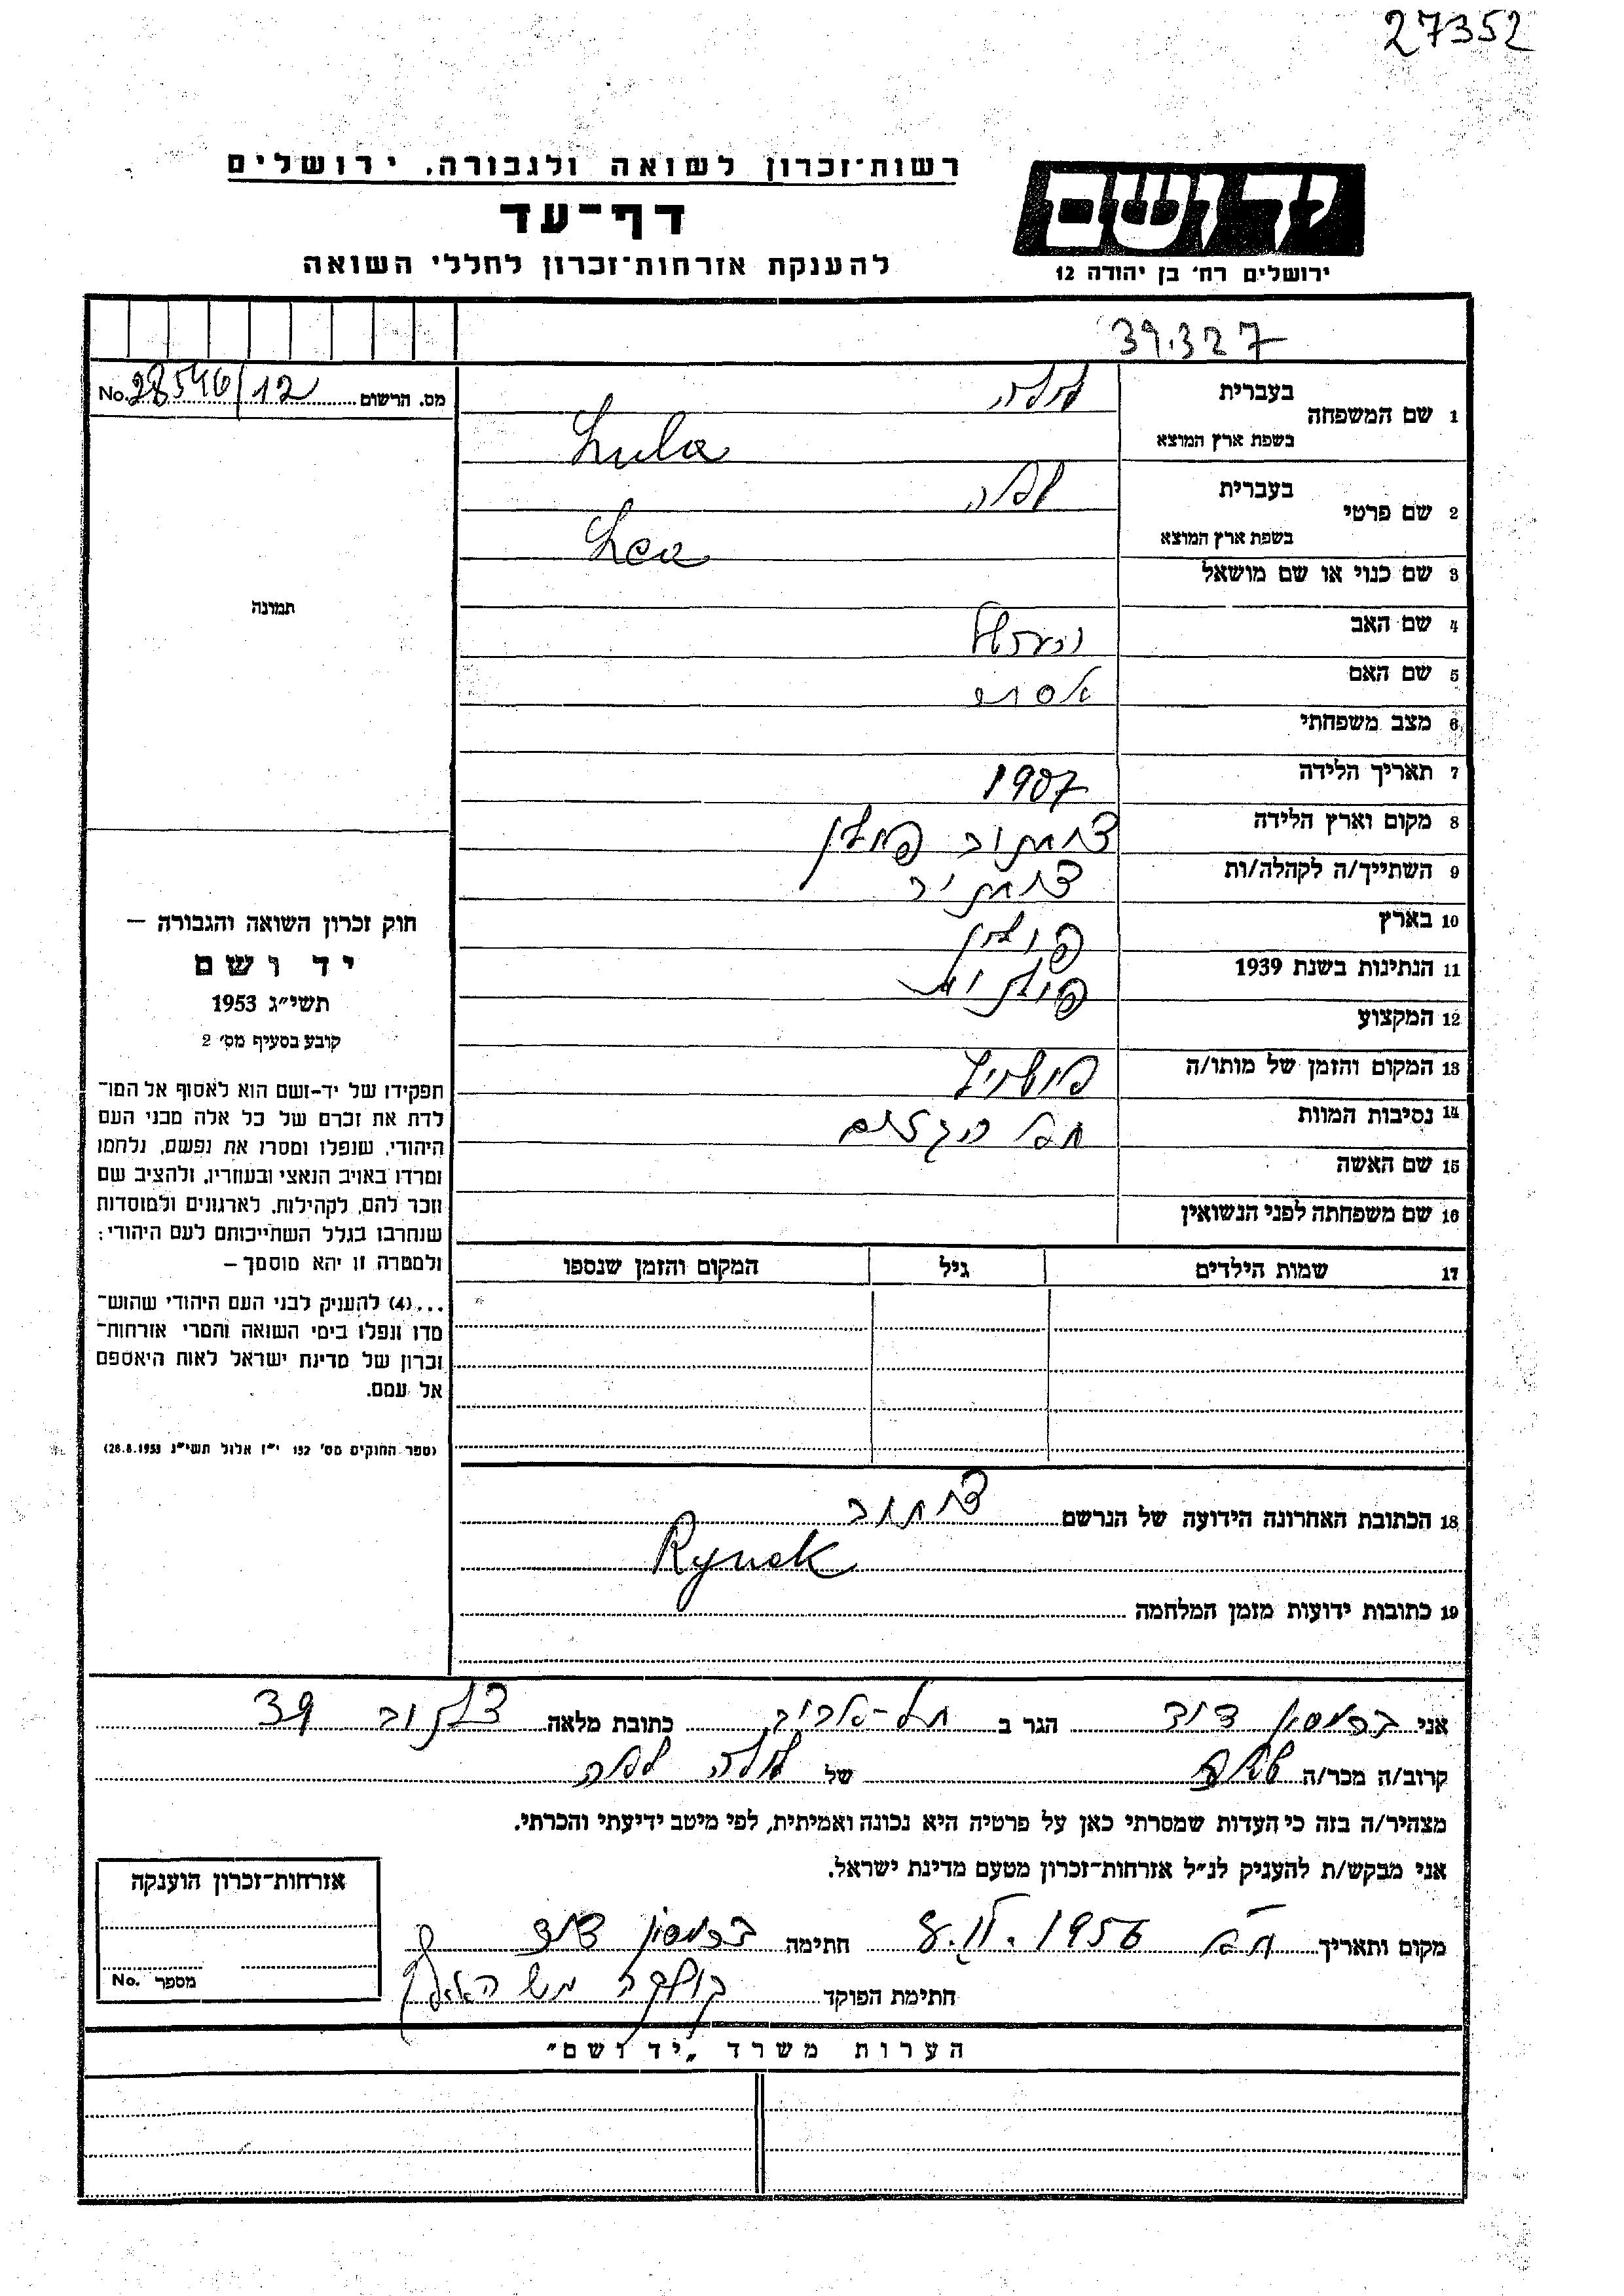 27352
רשות־זכרון לשואה ולגבורה, ירושלים
דף־עד
להענקת אזרחות־זכרון לחללי השואה
יד ושם
ירושלים רח' בן יהודה 12
39.327
מס. הרשום 28546/12 No.
1 שם המשפחה
בעברית לולה
בשפת ארץ המוצא Lula
2 שם פרטי
בעברית לאה
בשפת ארץ המוצא Lea
3 שם כנוי או שם מושאל
4 שם האב
5 שם האם
6 מצב משפחתי
7 תאריך הלידה 1907
8 מקום וארץ הלידה פולין
9 השתייך/ה לקהלה/ות
10 בארץ פולין
11 הנתינות בשנת 1939
12 המקצוע
13 המקום והזמן של מותו/ה
14 נסיבות המוות
15 שם האשה
16 שם משפחתה לפני הנשואין
17 שמות הילדים
גיל
המקום והזמן שנספו
תמונה
חוק זכרון השואה והגבורה –
יד ושם
תשי״ג 1953
קובע בסעיף מס׳ 2
תפקידו של יד-ושם הוא לאסוף אל המו־
לדת את זכרם של כל אלה מבני העם
היהודי, שנפלו ומסרו את נפשם, נלחמו
ומרדו באויב הנאצי ובעוזריו, ולהציב שם
וזכר להם, לקהילות, לארגונים ולמוסדות
שנחרבו בגלל השתייכותם לעם היהודי;
ולמטרה זו יהא מוסמך –
...(4) להעניק לבני העם היהודי שהוש־
מדו ונפלו בימי השואה והמרי אזרחות־
זכרון של מדינת ישראל לאות היאספם
אל עמם.
(ספר החוקים מס׳ 132 י״ז אלול תשי״ג 28.8.1953)
18 הכתובת האחרונה הידועה של הנרשם
Rynek
19 כתובות ידועות מזמן המלחמה
אני דוד הגר ב תל-אביב כתובת מלאה 39
קרוב/ה מכר/ה של לולה לאה
מצהיר/ה בזה כי העדות שמסרתי כאן על פרטיה היא נכונה ואמיתית, לפי מיטב ידיעתי והכרתי.
אני מבקש/ת להעניק לנ״ל אזרחות־זכרון מטעם מדינת ישראל.
מקום ותאריך ת״א 8.II.1956 חתימה דוד
חתימת הפוקד
אזרחות־זכרון הוענקה
מספר No.
הערות משרד „יד ושם״